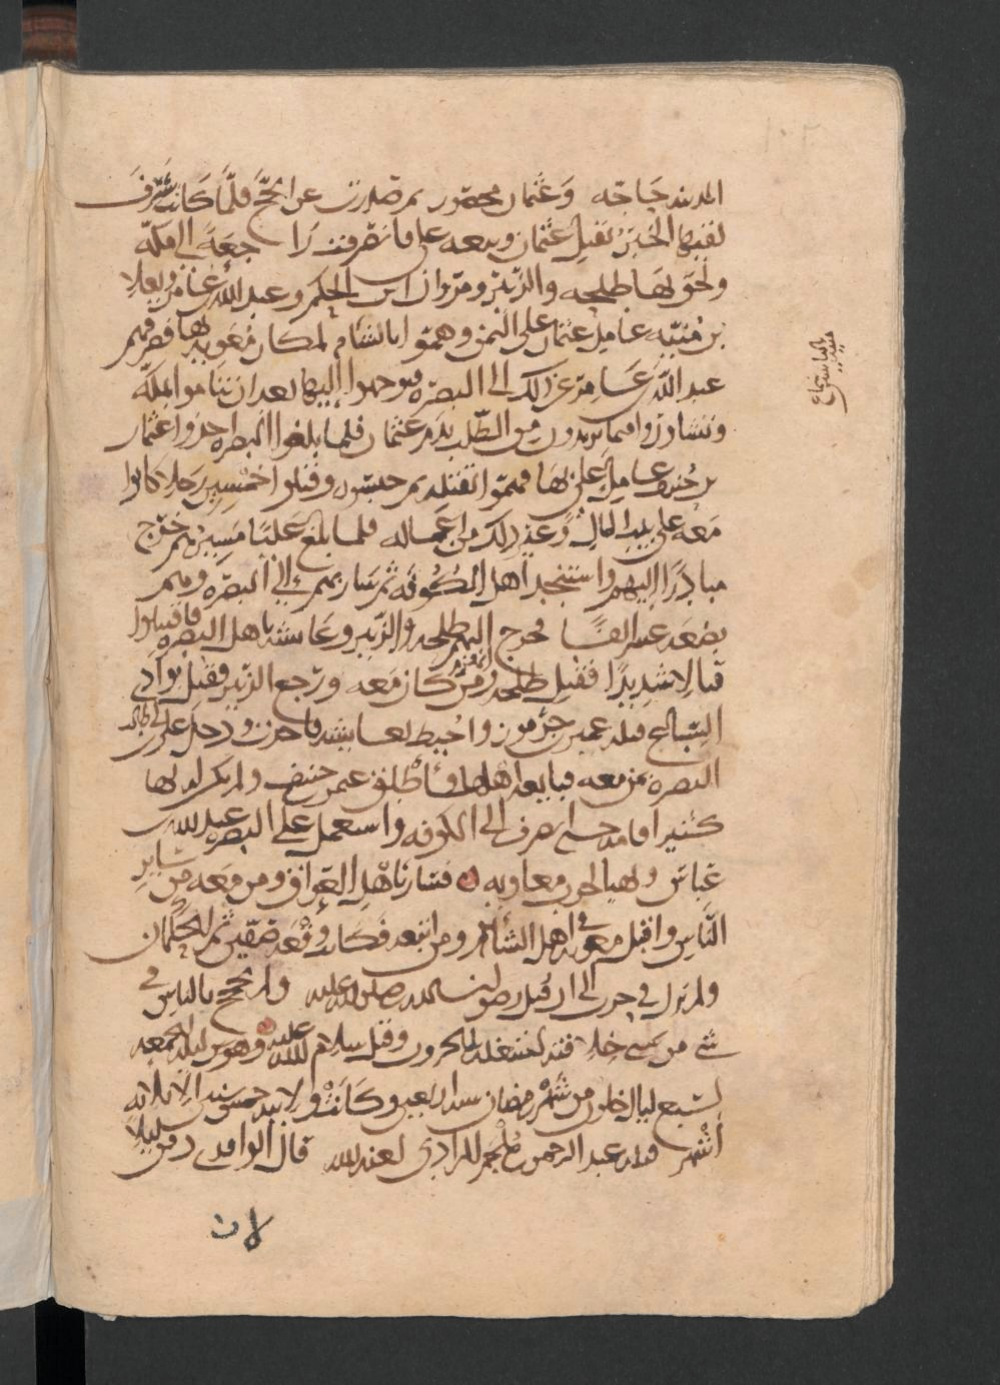 المدينه حَاجّه وَعُثمان محصور ثم صدرت عن الحجّ فلمّا كانت بشَرفَ
لقيها الخبرُ بقتل عثمان وبيعه على فانصرفت راجعَةً الى مكّه
ولحق بها طلحه والزّبير ومروان ابن الحكم وعبد الله بن عامر ويعلا
بن مُنيّه عامل عثمان على اليمن وهمّوا بالشام لمكان معويه بها فصرفهم
عبد الله بن عامر عن ذلك الى البصره فتوجهوا إليها بعد ان تآمروا بمكّه
وتشاوروا فيما يريدون من الطّلب بدم عثمان فلما بلغوا البصره اخذوا عثمان
بن حُنيف عامل عَلىّ بها فهمّوا بقتله ثم حبسوه وقتلوا خمسين رجلا كانوا
معه على بيت المال وغير ذلك من اعماله فلما بلغ عَليّا مَسيرهم خرج
مبادرًا إليهم واستنجد أهل الكُوفه ثم سار بهم إلى البصره وهم
بضعه عشر الفًا فخرج إليهم طلحه والزّبير وعائشه بأهل البصره فاقتتلوا
قتالا شديدًا فقتل طلحه وانهزم من كان معه ورجع الزبير فقتل بوادى
السّباع قتله عمير بن جرموز واحيط بعائشه فاخذت ودخل على بن ابى طالب
البصره بمن معه فبايعه أهلها وأطلق عثمن بن حنيف ولم يكن له بها
كثير اقامه حتى انصرف الى الكوفه واستعمل على البصره عبد الله بن
عباس وتهيا لحرب معاويه فسار بأهل العراق ومن معه من سائر
النّاس واقبل معويه فى أهل الشام ومن اتبعه فكانت وقعَه صِفّين ثم الحكَمان
ولم يزل فى حرب الى ان قتل رضوان الله عليه ولم يحجج بالناس فى
شى من سِنى خلافته لشغله بالحروب وقتل سلام الله عليه وهو من ليله الجمعه
لسَبع ليالٍ خلون من شهر رمضان سنه اربعين وكانت ولايته خمس سنين الا ثلاثه
أشهر قتله عبد الرحمن بن مُلْجم المرادى لعنه الله قال الواقدى دفن ليلا